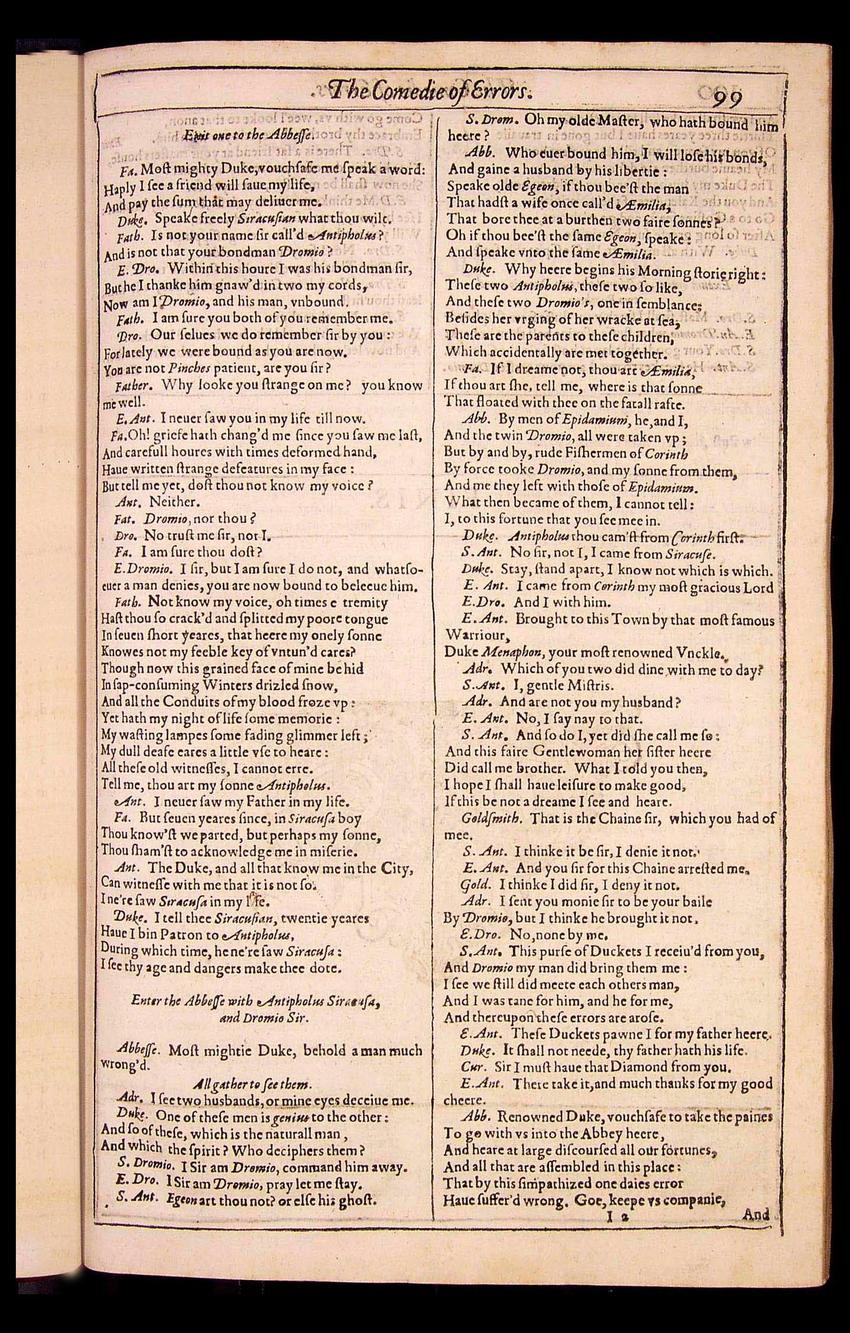 The Comedie of Errors.
99
Exit one to the Abbesse.
Fa. Most mighty Duke, vouchsafe me speak a word:
Haply I see a friend will saue my life,
And pay the sum that may deliuer me.
Duke. Speake freely Siracusian what thou wilt.
Fath. Is not your name sir call'd Antipholus?
And is not that your bondman Dromio?
E. Dro. Within this houre I was his bondman sir,
But he I thanke him gnaw'd in two my cords,
Now am I Dromio, and his man, vnbound.
Fath. I am sure you both of you remember me.
Dro. Our selues we do remember sir by you:
For lately we were bound as you are now.
You are not Pinches patient, are you sir?
Father. Why looke you strange on me? you know
me well.
E. Ant. I neuer saw you in my life till now.
Fa. Oh! griefe hath chang'd me since you saw me last,
And carefull houres with times deformed hand,
Haue written strange defeatures in my face:
But tell me yet, dost thou not know my voice?
Ant. Neither.
Fat. Dromio, nor thou?
Dro. No trust me sir, nor I.
Fa. I am sure thou dost?
E. Dromio. I sir, but I am sure I do not, and whatso-
euer a man denies, you are now bound to beleeue him.
Fath. Not know my voice, oh times e tremity
Hast thou so crack'd and splitted my poore tongue
In seuen short yeares, that heere my onely sonne
Knowes not my feeble key of vntun'd cares?
Though now this grained face of mine be hid
In sap-consuming Winters drizled snow,
And all the Conduits of my blood froze vp:
Yet hath my night of life some memorie:
My wasting lampes some fading glimmer left;
My dull deafe eares a little vse to heare:
All these old witnesses, I cannot erre.
Tell me, thou art my sonne Antipholus.
Ant. I neuer saw my Father in my life.
Fa. But seuen yeares since, in Siracusa boy
Thou know'st we parted, but perhaps my sonne,
Thou sham'st to acknowledge me in miserie.
Ant. The Duke, and all that know me in the City,
Can witnesse with me that it is not so.
I ne're saw Siracusa in my life.
Duke. I tell thee Siracusian, twentie yeares
Haue I bin Patron to Antipholus,
During which time, he ne're saw Siracusa:
I see thy age and dangers make thee dote.
Enter the Abbesse with Antipholus Siracusa,
and Dromio Sir.
Abbesse. Most mightie Duke, behold a man much
wrong'd.
All gather to see them.
Adr. I see two husbands, or mine eyes deceiue me.
Duke. One of these men is genius to the other:
And so of these, which is the naturall man,
And which the spirit? Who deciphers them?
S. Dromio. I Sir am Dromio, command him away.
E. Dro. I Sir am Dromio, pray let me stay.
S. Ant. Egeon art thou not? or else his ghost.
S. Drom. Oh my olde Master, who hath bound him
heere?
Abb. Who euer bound him, I will lose his bonds,
And gaine a husband by his libertie:
Speake olde Egeon, if thou bee'st the man
That hadst a wife once call'd Æmilia,
That bore thee at a burthen two faire sonnes?
Oh if thou bee'st the same Egeon, speake:
And speake vnto the same Æmilia.
Duke. Why heere begins his Morning storie right:
These two Antipholus, these two so like,
And these two Dromio's, one in semblance:
Besides her vrging of her wracke at sea,
These are the parents to these children,
Which accidentally are met together.
Fa. If I dreame not, thou art Æmilia,
If thou art she, tell me, where is that sonne
That floated with thee on the fatall rafte.
Abb. By men of Epidamium, he, and I,
And the twin Dromio, all were taken vp;
But by and by, rude Fishermen of Corinth
By force tooke Dromio, and my sonne from them,
And me they left with those of Epidamium.
What then became of them, I cannot tell:
I, to this fortune that you see mee in.
Duke. Antipholus thou cam'st from Corinth first.
S. Ant. No sir, not I, I came from Siracuse.
Duke. Stay, stand apart, I know not which is which.
E. Ant. I came from Corinth my most gracious Lord
E. Dro. And I with him.
E. Ant. Brought to this Town by that most famous
Warriour,
Duke Menaphon, your most renowned Vnckle.
Adr. Which of you two did dine with me to day?
S. Ant. I, gentle Mistris.
Adr. And are not you my husband?
E. Ant. No, I say nay to that.
S. Ant. And so do I, yet did she call me so:
And this faire Gentlewoman her sister heere
Did call me brother. What I told you then,
I hope I shall haue leisure to make good,
If this be not a dreame I see and heare.
Goldsmith. That is the Chaine sir, which you had of
mee.
S. Ant. I thinke it be sir, I denie it not.
E. Ant. And you sir for this Chaine arrested me.
Gold. I thinke I did sir, I deny it not.
Adr. I sent you monie sir to be your baile
By Dromio, but I thinke he brought it not.
E. Dro. No, none by me.
S. Ant. This purse of Duckets I receiu'd from you,
And Dromio my man did bring them me:
I see we still did meete each others man,
And I was tane for him, and he for me,
And thereupon these errors are arose.
E. Ant. These Duckets pawne I for my father heere.
Duke. It shall not neede, thy father hath his life.
Cur. Sir I must haue that Diamond from you.
E. Ant. There take it, and much thanks for my good
cheere.
Abb. Renowned Duke, vouchsafe to take the paines
To go with vs into the Abbey heere,
And heare at large discoursed all our fortunes,
And all that are assembled in this place:
That by this simpathized one daies error
Haue suffer'd wrong. Goe, keepe vs companie,
I 2
And